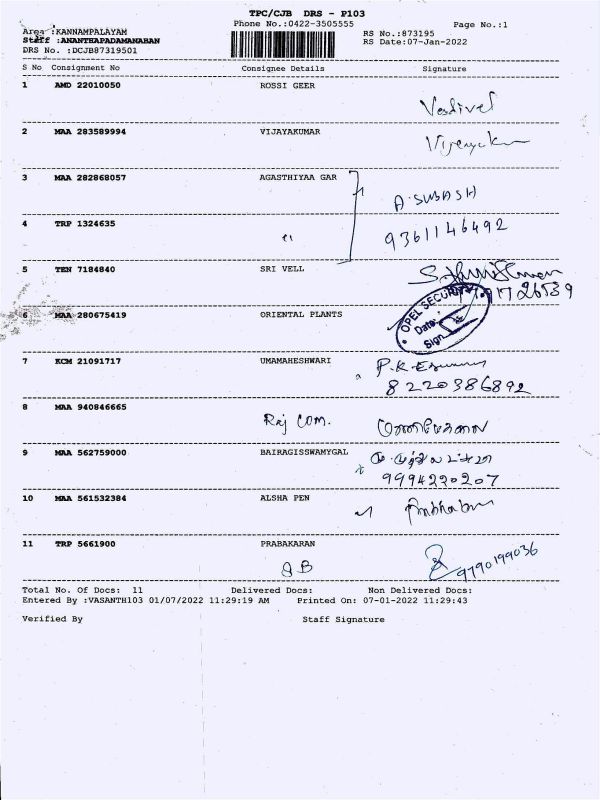 TPC/CJB DRS - P103
Phone No.:0422-3505555
Page No.:1
Area :KANNAMPALAYAM
RS No.:873195
Staff :ANANTHAPADAMANABAN
RS Date:07-Jan-2022
DRS No. :DCJB87319501
S No Consignment No Consignee Details Signature
1 AMD 22010050 ROSSI GEER
2 MAA 283589994 VIJAYAKUMAR
3 MAA 282868057 AGASTHIYAA GAR
A. SUBASH
4 TRP 1324635 "
9361146492
5 TEN 7184840 SRI VELL
6 MAA 280675419 ORIENTAL PLANTS
OPEL SECURITY
Date:
Sign
7 KCM 21091717 UMAMAHESHWARI
8220386892
8 MAA 940846665
Raj COM.
9 MAA 562759000 BAIRAGISSWAMYGAL
9994220207
10 MAA 561532384 ALSHA PEN
11 TRP 5661900 PRABAKARAN
9790199036
Total No. Of Docs: 11 Delivered Docs: Non Delivered Docs:
Entered By :VASANTH103 01/07/2022 11:29:19 AM Printed On: 07-01-2022 11:29:43
Verified By Staff Signature